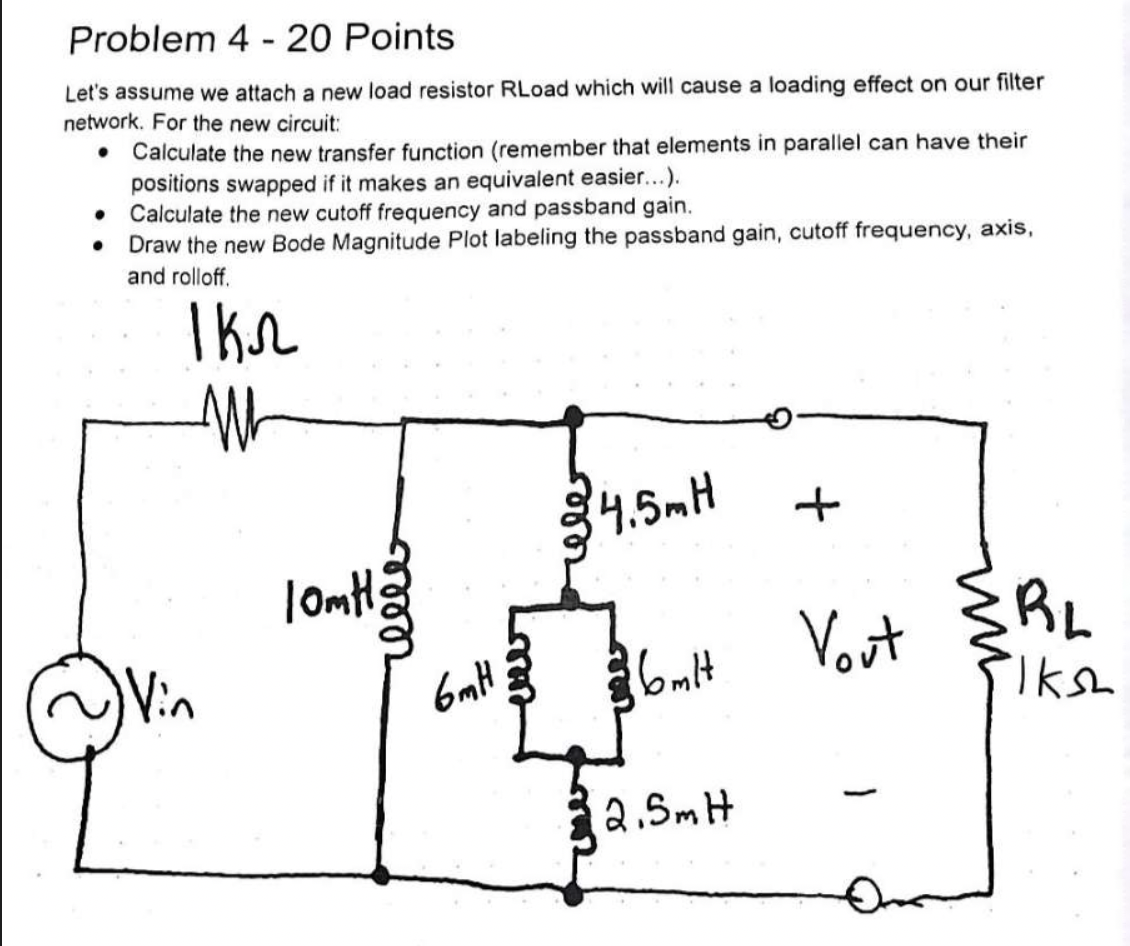 Problem 4 - 20 Points
Let's assume we attach a new load resistor RLoad which will cause a loading effect on our filter
network. For the new circuit:
• Calculate the new transfer function (remember that elements in parallel can have their
positions swapped if it makes an equivalent easier...).
• Calculate the new cutoff frequency and passband gain.
• Draw the new Bode Magnitude Plot labeling the passband gain, cutoff frequency, axis,
and rolloff.
1kΩ
4.5mH
+
10mH
RL
Vout
6mH
6mH
1kΩ
Vin
2.5mH
-